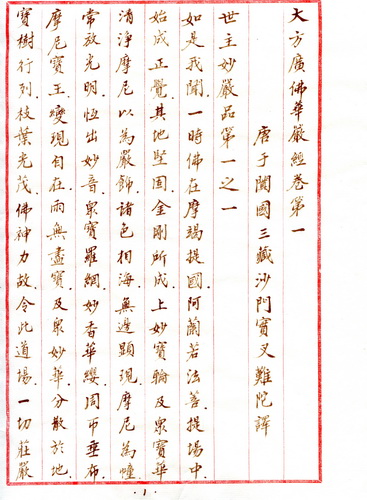 大方廣佛華嚴經卷第一
唐于闐國三藏沙門實叉難陀譯
世主妙嚴品第一之一
如是我聞.一時佛在摩竭提國阿蘭若法菩提場中.
始成正覺.其地堅固.金剛所成.上妙寶輪及眾寶華.
清淨摩尼以為嚴飾.諸色相海無邊顯現.摩尼為幢.
常放光明.恆出妙音.眾寶羅網.妙香華纓.周帀垂布.
摩尼寶王.變現自在.雨無盡寶及眾妙華分散於地.
寶樹行列.枝葉光茂.佛神力故.令此道場.一切莊嚴
·1·